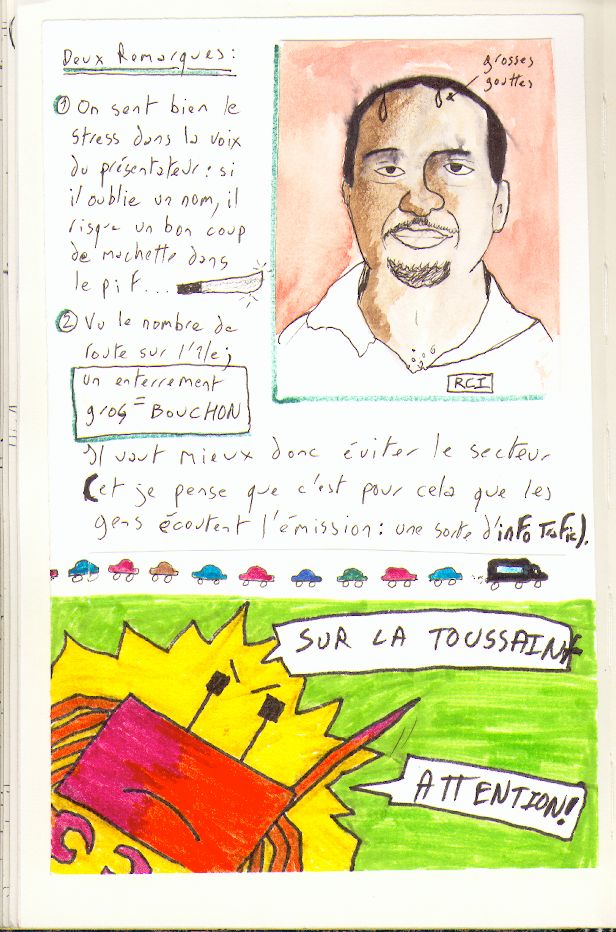 Deux Remarques:
grosses
gouttes
① On sent bien le
stress dans la voix
du présentateur : si
il oublie un nom, il
risque un bon coup
de machette dans
le pif...
② Vu le nombre de
route sur l'île;
un enterrement
gros = BOUCHON
RCI
Il vaut mieux donc éviter le secteur
(et je pense que c'est pour cela que les
gens écoutent l'émission : une sorte d'info Trafic).
SUR LA TOUSSAINT
ATTENTION!